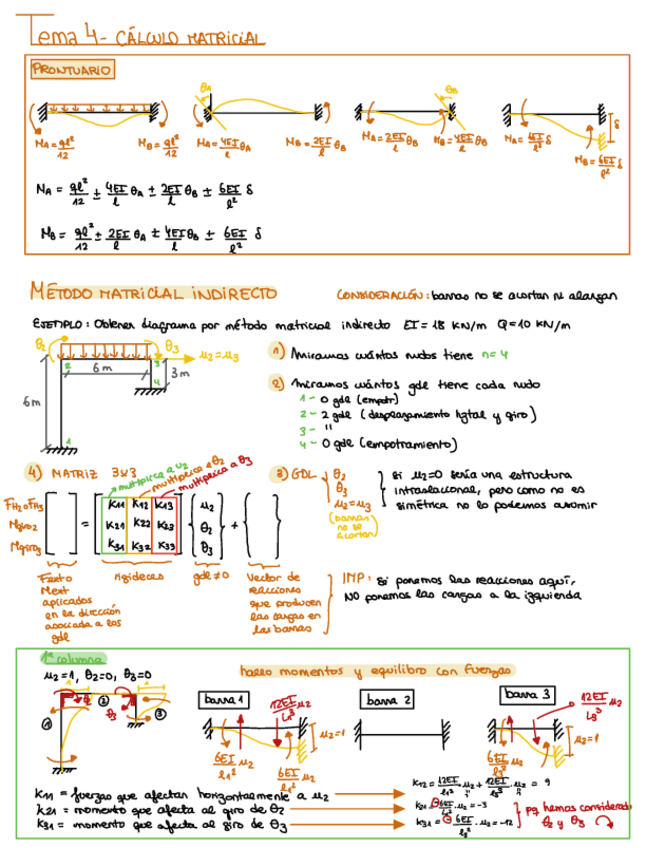 Tema 4- CÁLCULO MATRICIAL
PRONTUARIO
θA θB
MA = ql²/12 MB = ql²/12 MA = 4EI/l θA MB = 2EI/l θA MA = 2EI/l θB MB = 4EI/l θB MA = 6EI/l² δ MB = 6EI/l² δ
δ
MA = ql²/12 ± 4EI/l θA ± 2EI/l θB ± 6EI/l² δ
MB = ql²/12 ± 2EI/l θA ± 4EI/l θB ± 6EI/l² δ
MÉTODO MATRICIAL INDIRECTO CONSIDERACIÓN: barras no se acortan ni alargan
EJEMPLO: Obtener diagrama por método matricial indirecto EI = 18 KN/m Q=10 KN/m
θ2 θ3 μ2 = μ3
2 6m 3 3m
6m 4
1
1) Miramos cuántos nudos tiene n=4
2) miramos cuántos gdl tiene cada nudo
1 - 0 gdl (empotr)
2 - 2 gdl (desplazamiento hztal y giro)
3 - "
4 - 0 gdl (empotramiento)
4) MATRIZ 3x3
multiplica a μ2
multiplica a θ2
multiplica a θ3
FH2 o FH3 K11 K12 K13 μ2
Mgiro2 = K21 K22 K23 θ2 +
Mgiro3 K31 K32 K33 θ3
Fexto
Mext
aplicados
en la dirección
asociada a los
gdl
rigideces
gdl ≠ 0
Vector de
reacciones
que producen
las cargas en
las barras
3) GDL θ2
θ3
μ2 = μ3
(barras
no se
acortan)
si μ2=0 sería una estructura
intraslacional, pero como no es
simétrica no lo podemos asumir
IMP: si ponemos las reacciones aquí,
NO ponemos las cargas a la izquierda
1ª columna
μ2 = 1, θ2=0, θ3=0
1 2 3
hallo momentos y equilibro con fuerzas
barra 1 12EI/L1³ μ2 μ2=1 6EI/l1² μ2 6EI/l1² μ2
barra 2
barra 3 12EI/L3³ μ2 μ2=1 6EI/l3² μ2
K11 = fuerzas que afectan horizontalmente a μ2
K21 = momento que afecta al giro de θ2
K31 = momento que afecta al giro de θ3
K12 = 12EI/l1³ · μ2 + 12EI/l3³ · μ2 = 9
K21 = - 6EI/l1² · μ2 = -3
K31 = - 6EI/l3² · μ2 = -12
pq hemos considerado
θ2 y θ3